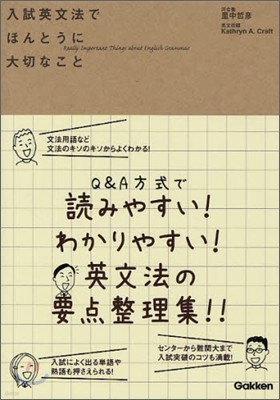 入試英文法で
ほんとうに
大切なこと
Really Important Things about English Grammar
河合塾
里中哲彦
英文校閲
Kathryn A. Craft
文法用語など
文法のキソのキソからよくわかる!
Q&A方式で
読みやすい!
わかりやすい!
英文法の
要点整理集!!
入試によく出る単語や
熟語も押さえられる!
センターから難関大まで
入試突破のコツも満載!
Gakken